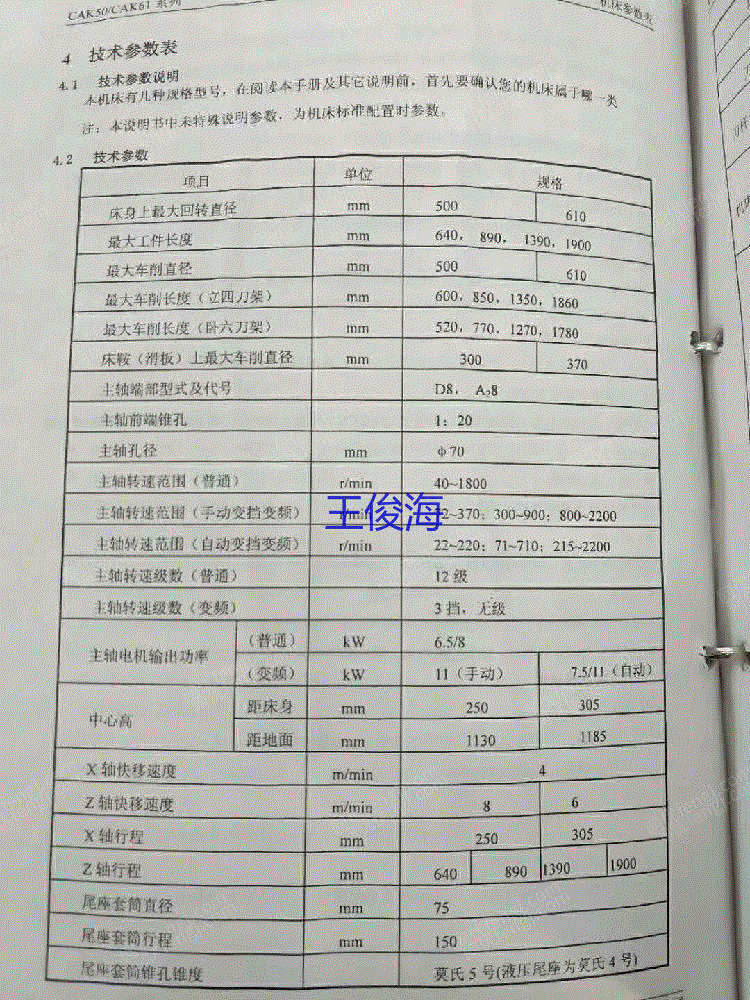 CAK50/CAK61 系列
机床参数表
4 技术参数表
4.1 技术参数说明
本机床有几种规格型号，在阅读本手册及其它说明前，首先要确认您的机床属于哪一类
注：本说明书中未特殊说明参数，为机床标准配置时参数。
4.2 技术参数
项目 单位 规格
床身上最大回转直径 mm 500 610
最大工件长度 mm 640， 890， 1390，1900
最大车削直径 mm 500 610
最大车削长度（立四刀架） mm 600，850，1350，1860
最大车削长度（卧六刀架） mm 520，770，1270，1780
床鞍（滑板）上最大车削直径 mm 300 370
主轴端部型式及代号 D8， A₂8
主轴前端锥孔 1：20
主轴孔径 mm φ70
主轴转速范围（普通） r/min 40~1800
主轴转速范围（手动变挡变频） 370；300~900；800~2200
王俊海
主轴转速范围（自动变挡变频） r/min 22~220；71~710；215~2200
主轴转速级数（普通） 12 级
主轴转速级数（变频） 3 挡，无级
主轴电机输出功率 （普通） kW 6.5/8
（变频） kW 11（手动） 7.5/11（自动）
中心高 距床身 mm 250 305
距地面 mm 1130 1185
X 轴快移速度 m/min 4
Z 轴快移速度 m/min 8 6
X 轴行程 mm 250 305
Z 轴行程 mm 640 890 1390 1900
尾座套筒直径 mm 75
尾座套筒行程 mm 150
尾座套筒锥孔锥度 莫氏 5 号(液压尾座为莫氏 4 号)